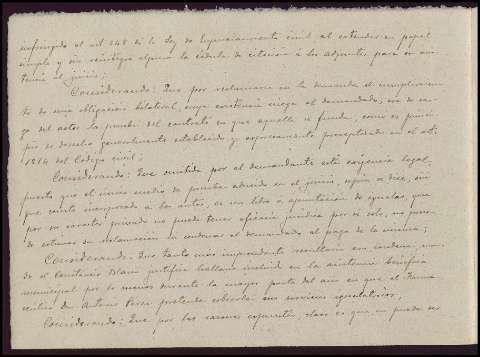 infringido el art 248 de la Ley de Enjuiciamiento civil al extender en papel
simple y sin reintegro alguno la cédula de citación á los adjuntos para su asis-
tencia al juicio;
Considerando: Que por reclamarse en la demanda el cumplimien-
to de una obligación bilateral, cuya existencia niega el demandado, era de car-
go del actor la prueba del contrato en que aquella se funda, como es princi-
pio de derecho generalmente establecido y expresamente preceptuado en el art.
1214 del Código civil;
Considerando: Que omitida por el demandante esta exigencia legal,
puesto que el único medio de prueba aducido en el juicio, según se dice, sin
que conste incorporado á los autos, es un libro ó apuntación de igualas, que
por su carácter privado no puede tener eficacia jurídica por sí solo, no puede
estimarse su reclamación ni condenar al demandado al pago de la misma;
Considerando: Que tanto más improcedente resultaría esa condena, cuan-
do el Santiago Blanco justifica hallarse incluido en la asistencia benéfica
municipal por lo menos durante la mayor parte del año en que el Farma-
céutico Dn Antonio Perez pretende cobrarle sus servicios igualatorios;
Considerando: Que por las razones expuestas, claro es que no puede ser